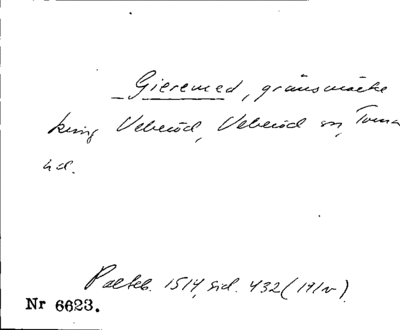 Gieremed, gränsmärke
kring Veberöd, Veberöd sn, Torna
hd.
Palteb. 1514, sid. 432 (191v).
Nr 6623.